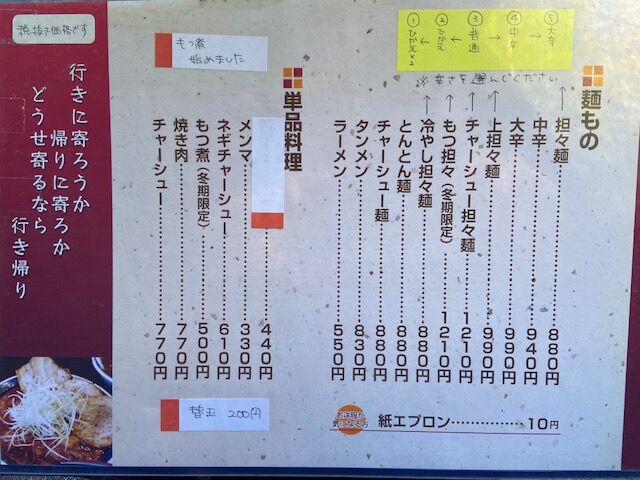 ⑤大辛
④中辛
③普通
②ひかえ
①ひかえ×2
※辛さを選んでください
麺もの
担々麺 880円
中辛 940円
大辛 990円
上担々麺 990円
チャーシュー担々麺 1210円
もつ担々(冬期限定) 1210円
冷やし担々麺 880円
とんとん麺 880円
チャーシュー麺 880円
タンメン 830円
ラーメン 550円
お洋服が
気になる方
紙エプロン 10円
もつ煮
始めました
単品料理
440円
メンマ 330円
ネギチャーシュー 610円
もつ煮(冬期限定) 500円
焼き肉 770円
チャーシュー 770円
替玉 200円
税抜き価格です
行きに寄ろうか
帰りに寄ろか
どうせ寄るなら
行き帰り